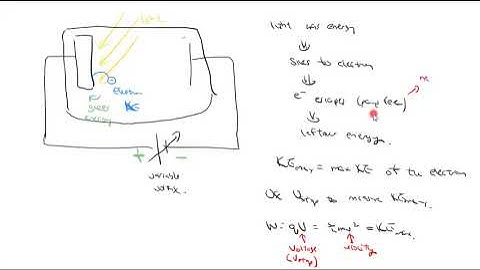 light
Electron
KE
gives
energy
+ -
variable
light has energy
gives to electron
e⁻ escapes (pays fee)
leftover energy.
KEmax = max KE of the electron
Use Vstop to measure KEmax.
W = qV = ½mv² = KEmax
Voltage
(Vstop)
velocity